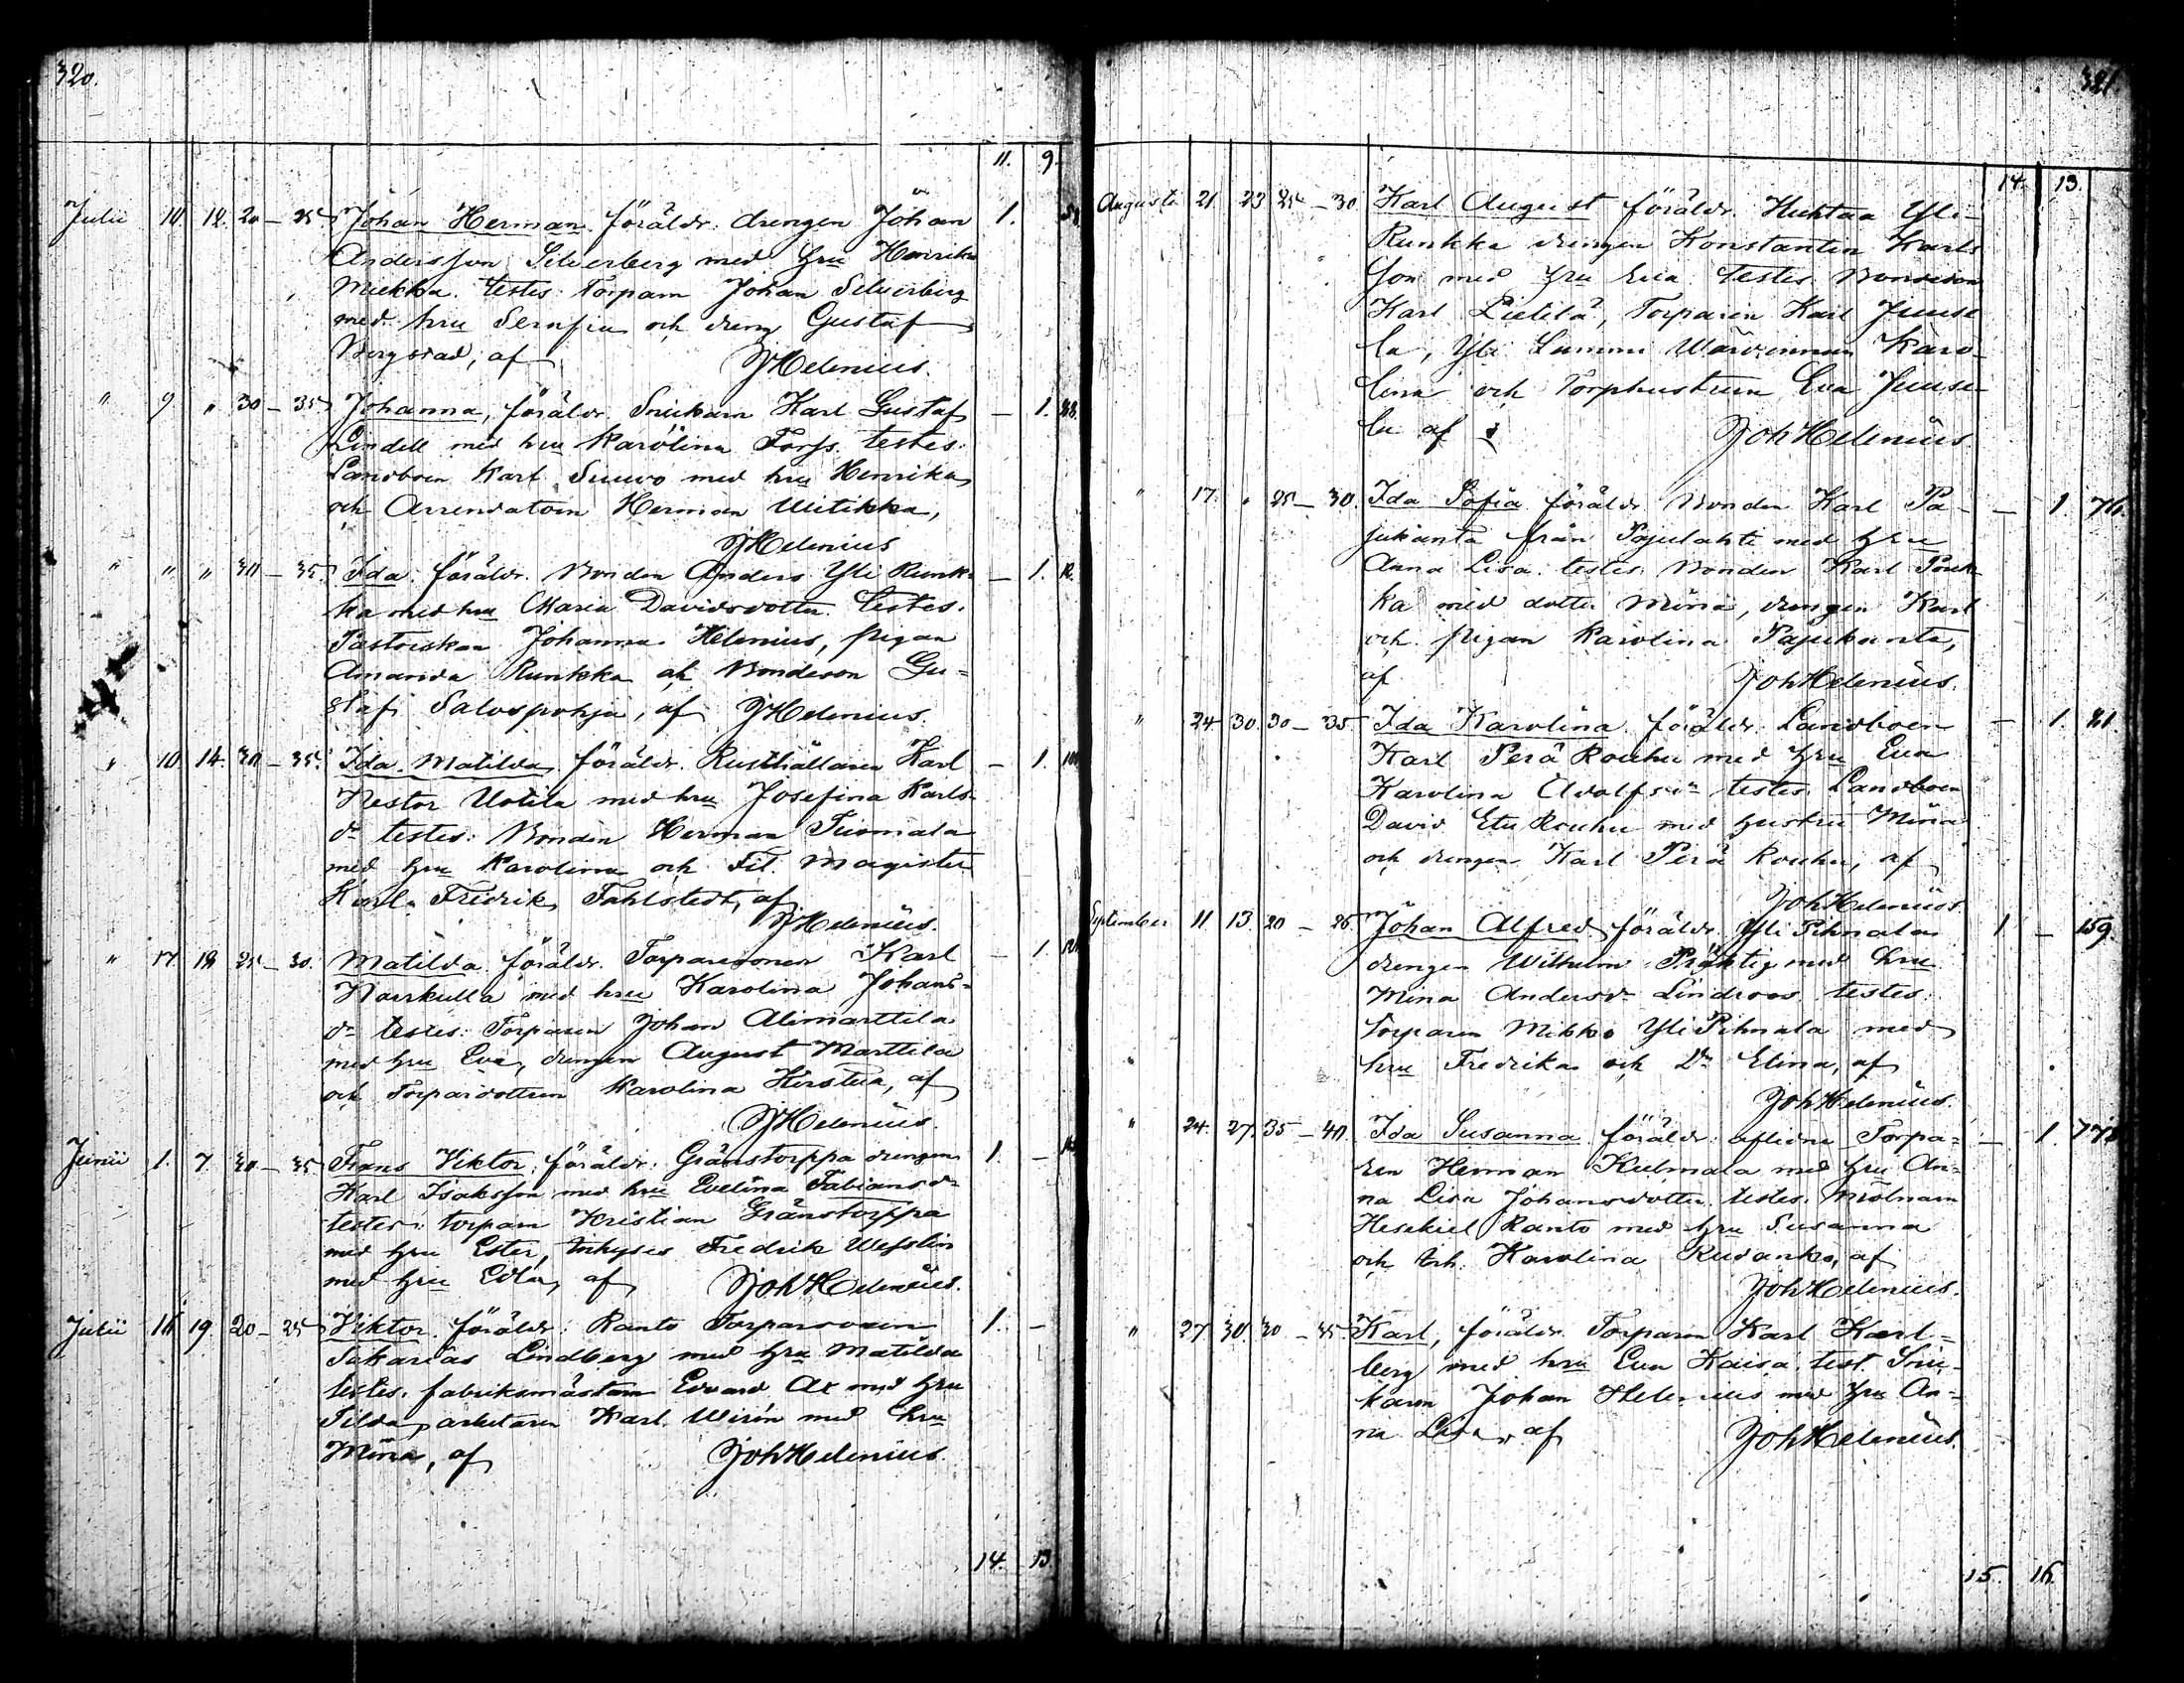 320.
11. 9.
Julii 10. 12. 20 – 25 Johan Herman, föräldr. drengen Johan 1.
Andersson Silverberg med hru Henrika
Miekka. testes: Torparn Johan Silverberg
med hru Serafia och dreng Gustaf
Bergstad, af JHelenius.
" 9 " 30 – 35 Johanna, föräldr. Snickarn Karl Gustaf – 1.
Lindell med hru Karolina Forss. testes:
Landboen Karl Siuvo med hru Henrika
och Arrendatorn Herman Uitikka,
JHelenius
" " " 30 – 35. Ida. föräldr. Bonden Anders Yli Runk- – 1.
ka med hru Maria Davidsdotter. testes.
Pastorskan Johanna Helenius, pigan
Amanda Runkka och Bondeson Gu-
staf Salospohja, af JHelenius.
" 10 14. 30 – 35. Ida Matilda, föräldr. Rusthållaren Karl – 1.
Nestor Uotila med hru Josefina Karls-
dr testes: Bonden Herman Tuomala
med hru Karolina och Fil. Magister
Karl Fredrik Fahlstedt, af
JHelenius.
" 17. 18 25 – 30. Matilda. föräldr. Torparesonen Karl – 1.
med hru Karolina Johans-
dr testes: Torparen Johan Alimarttila
med hru Eva, drengen August Marttila
och Torpardottren Karolina Kirstua, af
JHelenius.
Junii 1. 7. 30 – 35 Frans Viktor, föräldr: Gränstorppa drengen 1. –
Karl Isaksson med hru Evelina Fabiansdr
testes: torparn Kristian Gränstorppa
med hru Ester, Inhyses Fredrik Wesslin
med hru Edla, af JohHelenius.
Julii 16 19. 20 – 25 Viktor. föräldr: Ranto Torparsonen 1. –
Sakarias Lindberg med hru Matilda
testes. fabriksmästarn Edvard Ax med hru
Tilda, arbetaren Karl Wirén med hru
Mina, af JohHelenius.
14. 13.
321.
14. 13.
Augusti 21 23 25 – 30. Karl August föräldr. Huhtaa Yli-
Runkka drengen Konstantin Karls
son med hru Eva testes Bondeson
Karl Pietilä, Torparen Karl Juuse
la, Yli Lammi Wärdinnan Karo-
lina och Torphustrun Eva Juuse-
la af JohHelenius
" 17. " 25 – 30. Ida Sofia föräldr Bonden Karl Pa- – 1 76.
jukanta från Pajulahti med hru
Anna Lisa. testes Bonden Karl Pouk-
ka med dotter Mina, drengen Karl
och pigan Karolina Pajukanta,
af JohHelenius.
" 24 30. 30 – 35. Ida Karolina, föräldr. Landboen – 1. 21.
Karl Perä Rouhu med hru Eva
Karolina Adolfsdr testes Landboen
David Etu Rouhu med hustru Mina
och drengen Karl Perä Rouhu, af
JohHelenius
September 11 13. 20 – 25 Johan Alfred, föräldr. Yli Pihnala 1 – 159.
drengen Wilhelm Präktig med hru
Mina Andersdr Lindroos testes:
torparen Mikko Yli Pihnala med
hru Fredrika och Dr Elina, af
JohHelenius.
" 24. 27. 35 – 40. Ida Susanna, föräldr: aflidne Torpa- – 1.
ren Herman Kulmala med hru An-
na Lisa Johansdotter. testes. Mölnarn
Hesekiel Ranto med hru Susanna
och Inh. Karolina Rudanko, af
JohHelenius.
" 27 30. 30 – 35. Karl, föräldr. Torparen Karl Karl-
berg med hru Eva Kaisa. test. Snic-
karn Johan Helenius med hru An-
na Lisa, af JohHelenius.
15. 16.